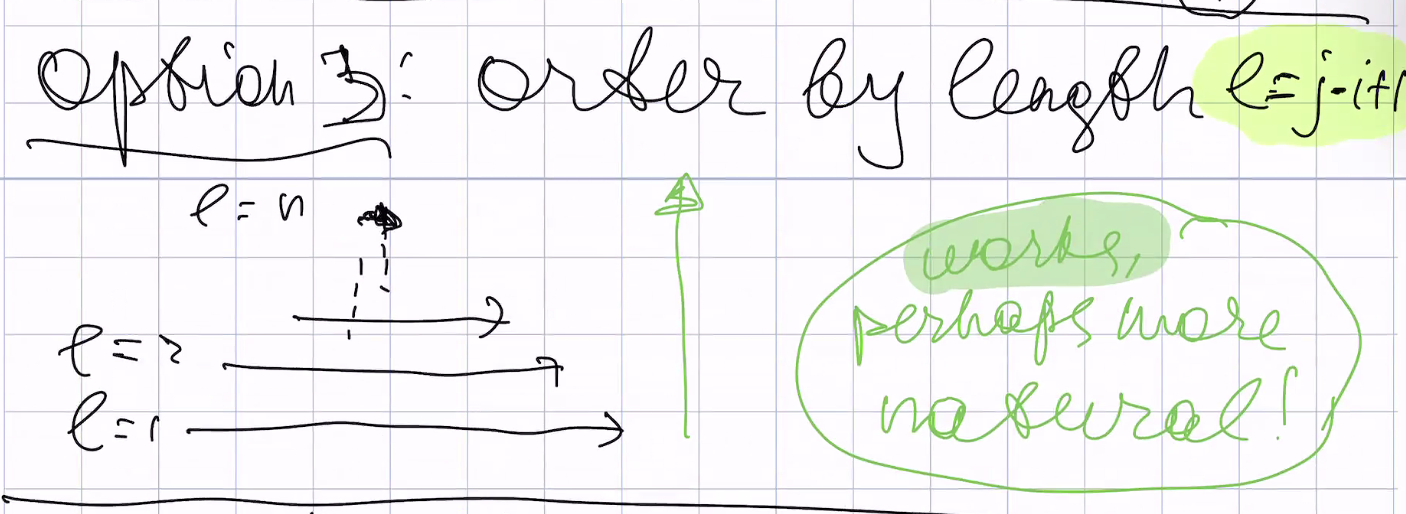 Option 3: order by length l=j-i+1
l=n
works,
perhaps more
natural!
l=2
l=1